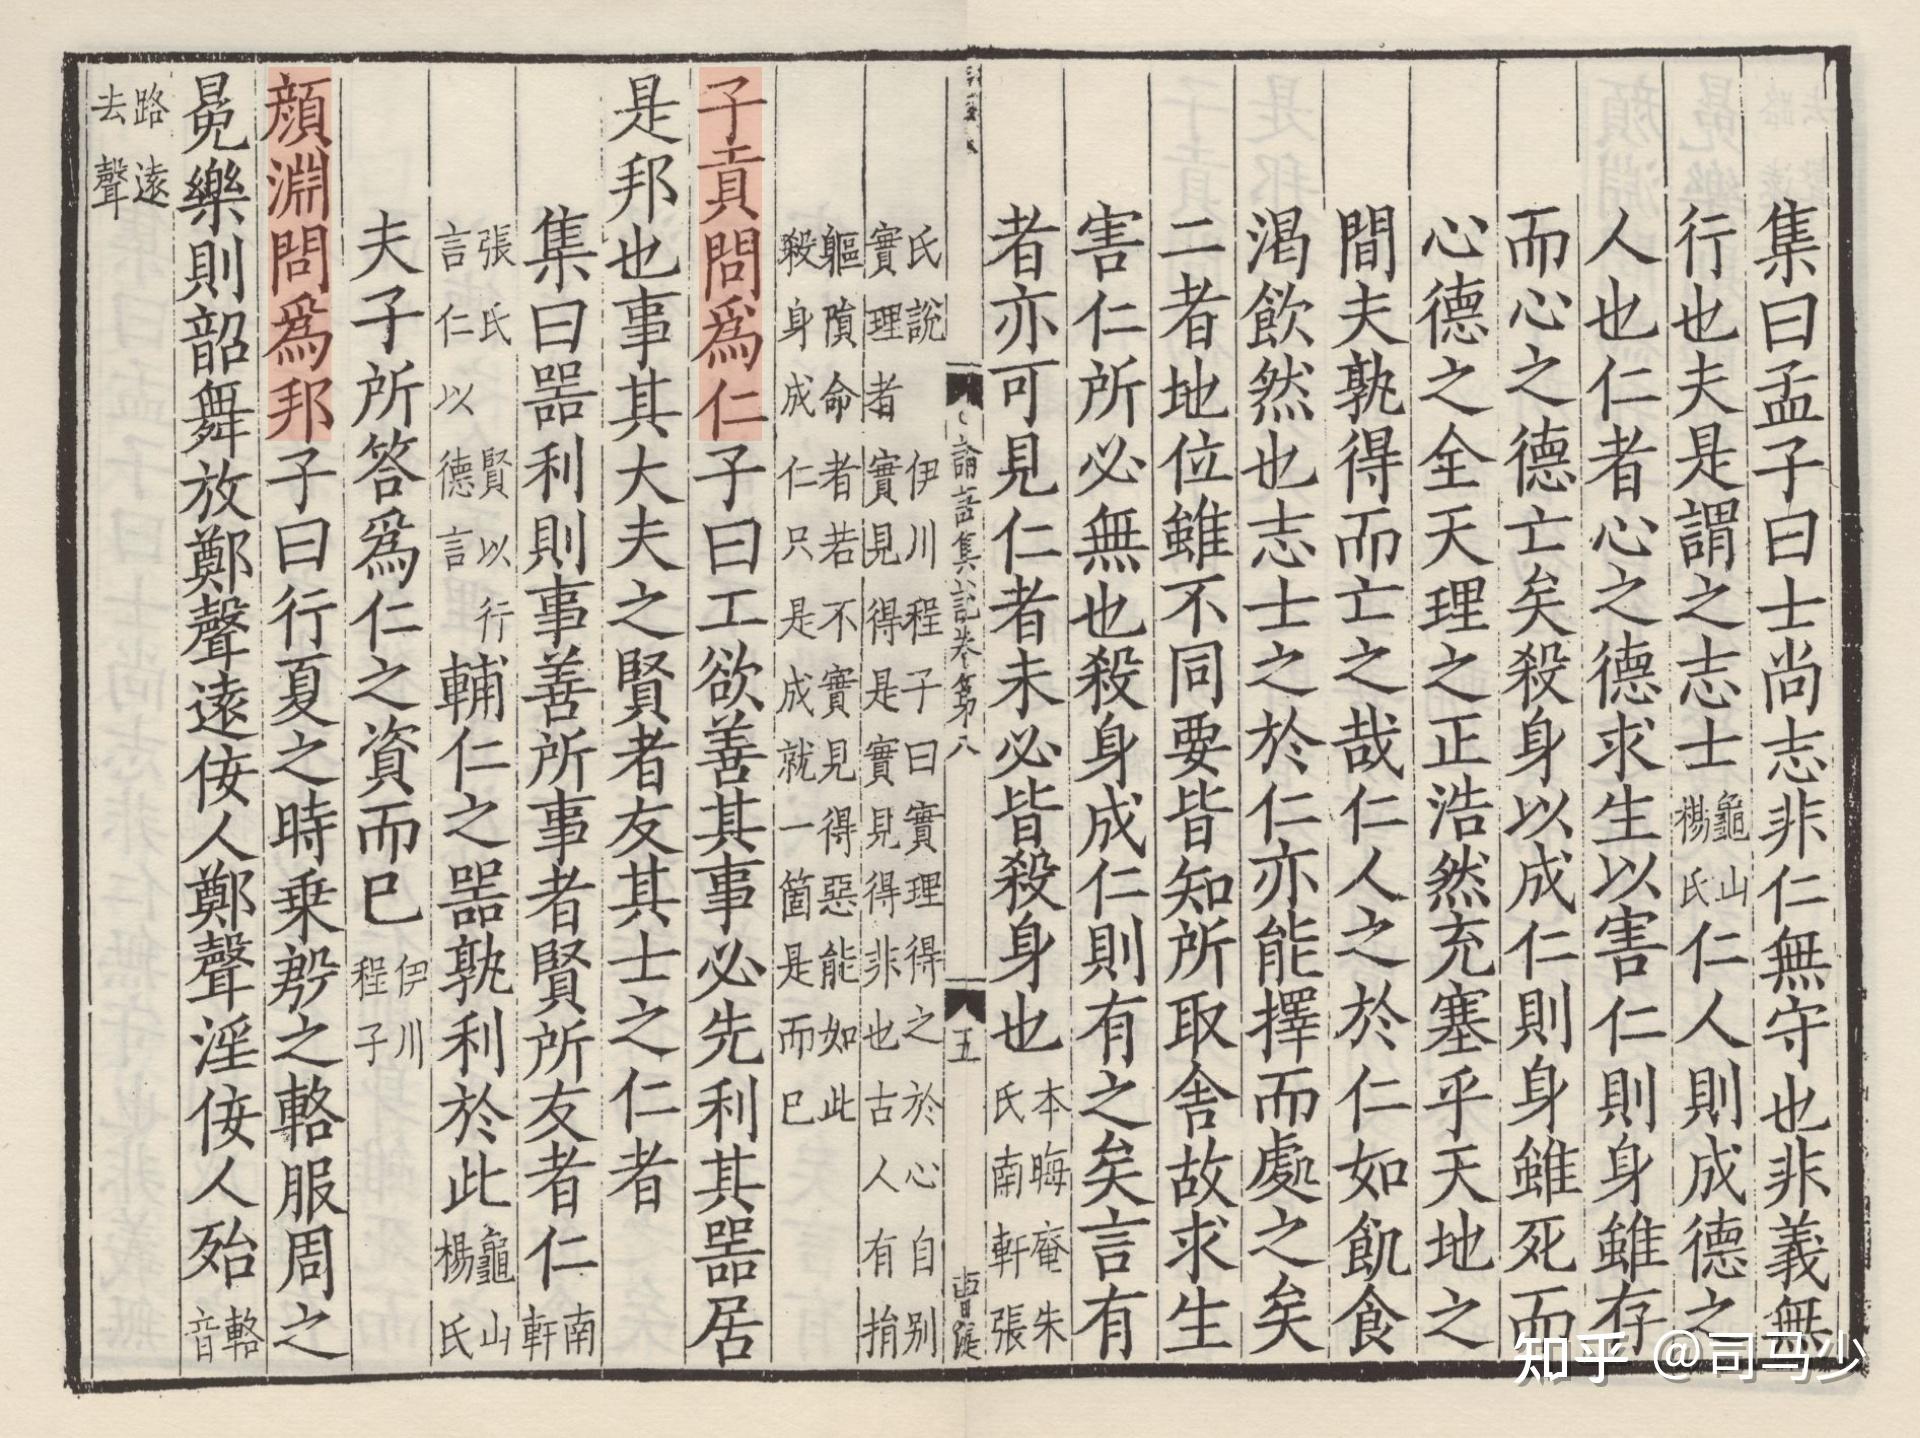 集曰孟子曰士尚志非仁無守也非義無
行也夫是謂之志士龜山楊氏仁人則成德之
人也仁者心之德求生以害仁則身雖存
而心之德亡矣殺身以成仁則身雖死而
心德之全天理之正浩然充塞乎天地之
間夫孰得而亡之哉仁人之於仁如飢食
渴飲然也志士之於仁亦能擇而處之矣
二者地位雖不同要皆知所取舍故求生
害仁所必無也殺身成仁則有之矣言有
者亦可見仁者未必皆殺身也本晦庵朱氏南軒張
論語集説卷第八
五
氏說 伊川程子曰實理得之於心自别
實理者實見得是實見得非也古人有捐
軀隕命者若不實見得惡能如此
殺身成仁只是成就一箇是而已
子貢問爲仁子曰工欲善其事必先利其器居
是邦也事其大夫之賢者友其士之仁者
集曰器利則事善所事者賢所友者仁南軒
張氏 賢以行
言仁以德言
輔仁之器孰利於此龜山楊氏
夫子所答爲仁之資而已伊川程子
顔淵問爲邦子曰行夏之時乗殷之輅服周之
冕樂則韶舞放鄭聲遠佞人鄭聲淫佞人殆輅音
路遠
去聲
知乎 @司马少